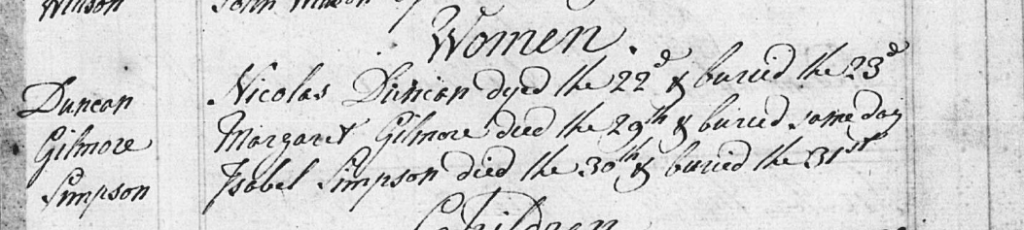 Wilson John Wilson
Women.
Duncan Nicolas Duncan dyed the 22d & buried the 23d
Gilmore Margaret Gilmore died the 29th & buried same day
Simpson Isobel Simpson died the 30th & buried the 31st
Children